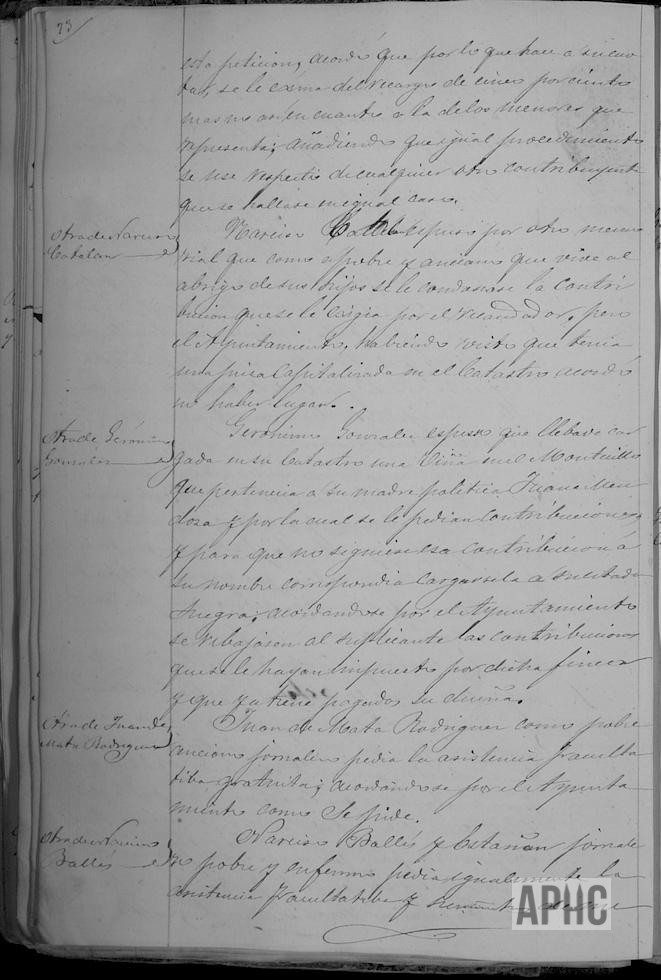 73
esta peticion, acordó que por lo que hace a su cuo
ta, se le exima del recargo de cinco por ciento
mas no asi en cuanto a la de los menores que
representa; añadiendo que igual procedimiento
se use respecto de cualquier otro contribuyente
que se hallase en igual caso.
Otra de Narciso
Catalan
Narciso espuso por otro memo
rial que como pobre y anciano que vive al
abrigo de sus hijos se le condonase la contri
bucion que se le exigia por el recaudador, pero
el Ayuntamiento, habiendo visto que tenia
una finca Capitalizada en el Catastro acordó
no haber lugar.
Otra de Gerónimo
Gonzalez
Geronimo Gonzalez espuso que llebaba car
gada en su Catastro una Viña en el Montecillo
que pertenecia a su madre politica Juana Men
doza y por la cual se le pedian contribuciones,
y para que no siguiese esa contribucion a
su nombre correspondia cargarsela a su citada
Suegra; acordandose por el Ayuntamiento
se rebajasen al suplicante las contribuciones
que se le hayan impuesto por dicha finca
y que ya tiene pagados su dueña.
Otra de Juan de
Mata Rodriguez
Juan de Mata Rodriguez como pobre
anciano jornalero pedia la asistencia faculta
tiba gratuita; acordandose por el Ayunta
miento como Se pide.
Otra de Narciso
Ballés
Narciso Ballés y Estañan jornale
ro pobre y enfermo pedia igualmente la
asistencia facultatiba y
APHC